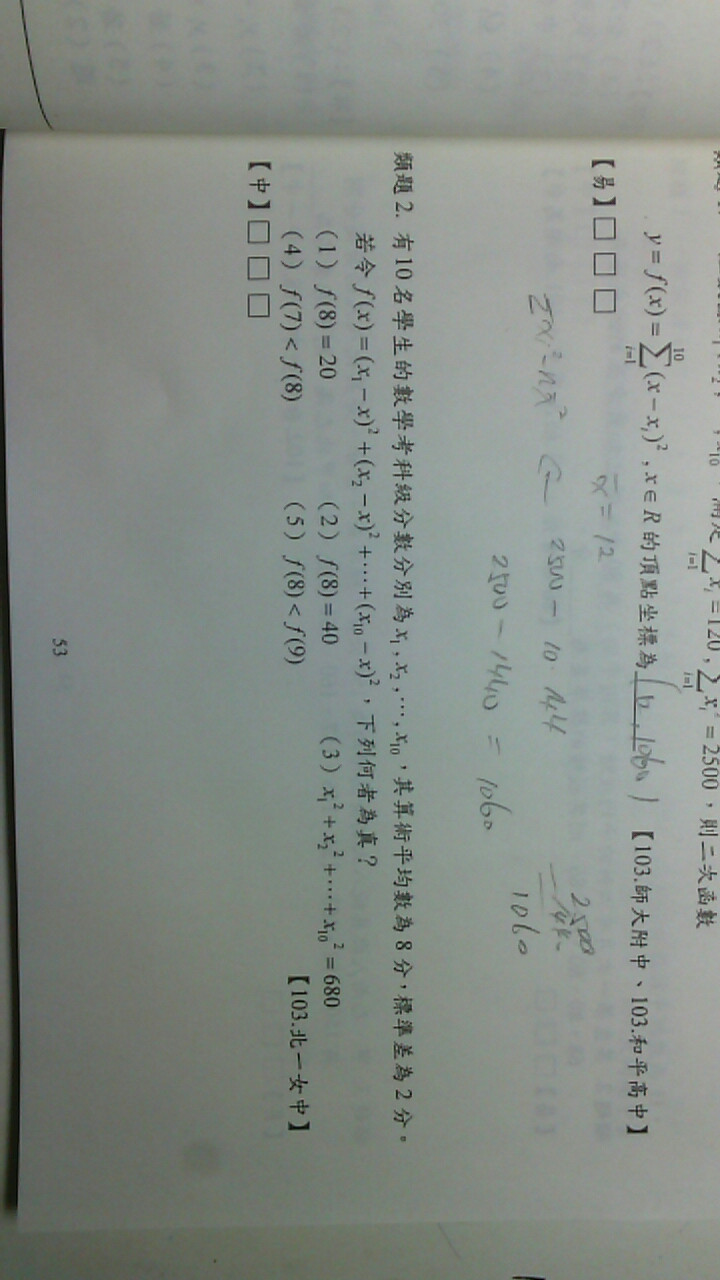 = 120 , Σ x_i² = 2500 , 則二次函數
y = f(x) = Σ_{i=1}^{10} (x − x_i)² , x ∈ R 的頂點坐標為 【103.師大附中、103.和平高中】
【易】□ □ □
x̄ = 12
Σx_i² − nx̄² 2500 − 10·144
2500 − 1440 = 1060
2500
1060
類題 2. 有 10 名學生的數學考科級分數分別為 x₁ , x₂ , ⋯ , x₁₀ ,其算術平均數為 8 分,標準差為 2 分。
若令 f(x) = (x₁ − x)² + (x₂ − x)² + ⋯ + (x₁₀ − x)² ,下列何者為真?
(1) f(8) = 20 (2) f(8) = 40 (3) x₁² + x₂² + ⋯ + x₁₀² = 680
(4) f(7) < f(8) (5) f(8) < f(9) 【103.北一女中】
【中】□ □ □
53